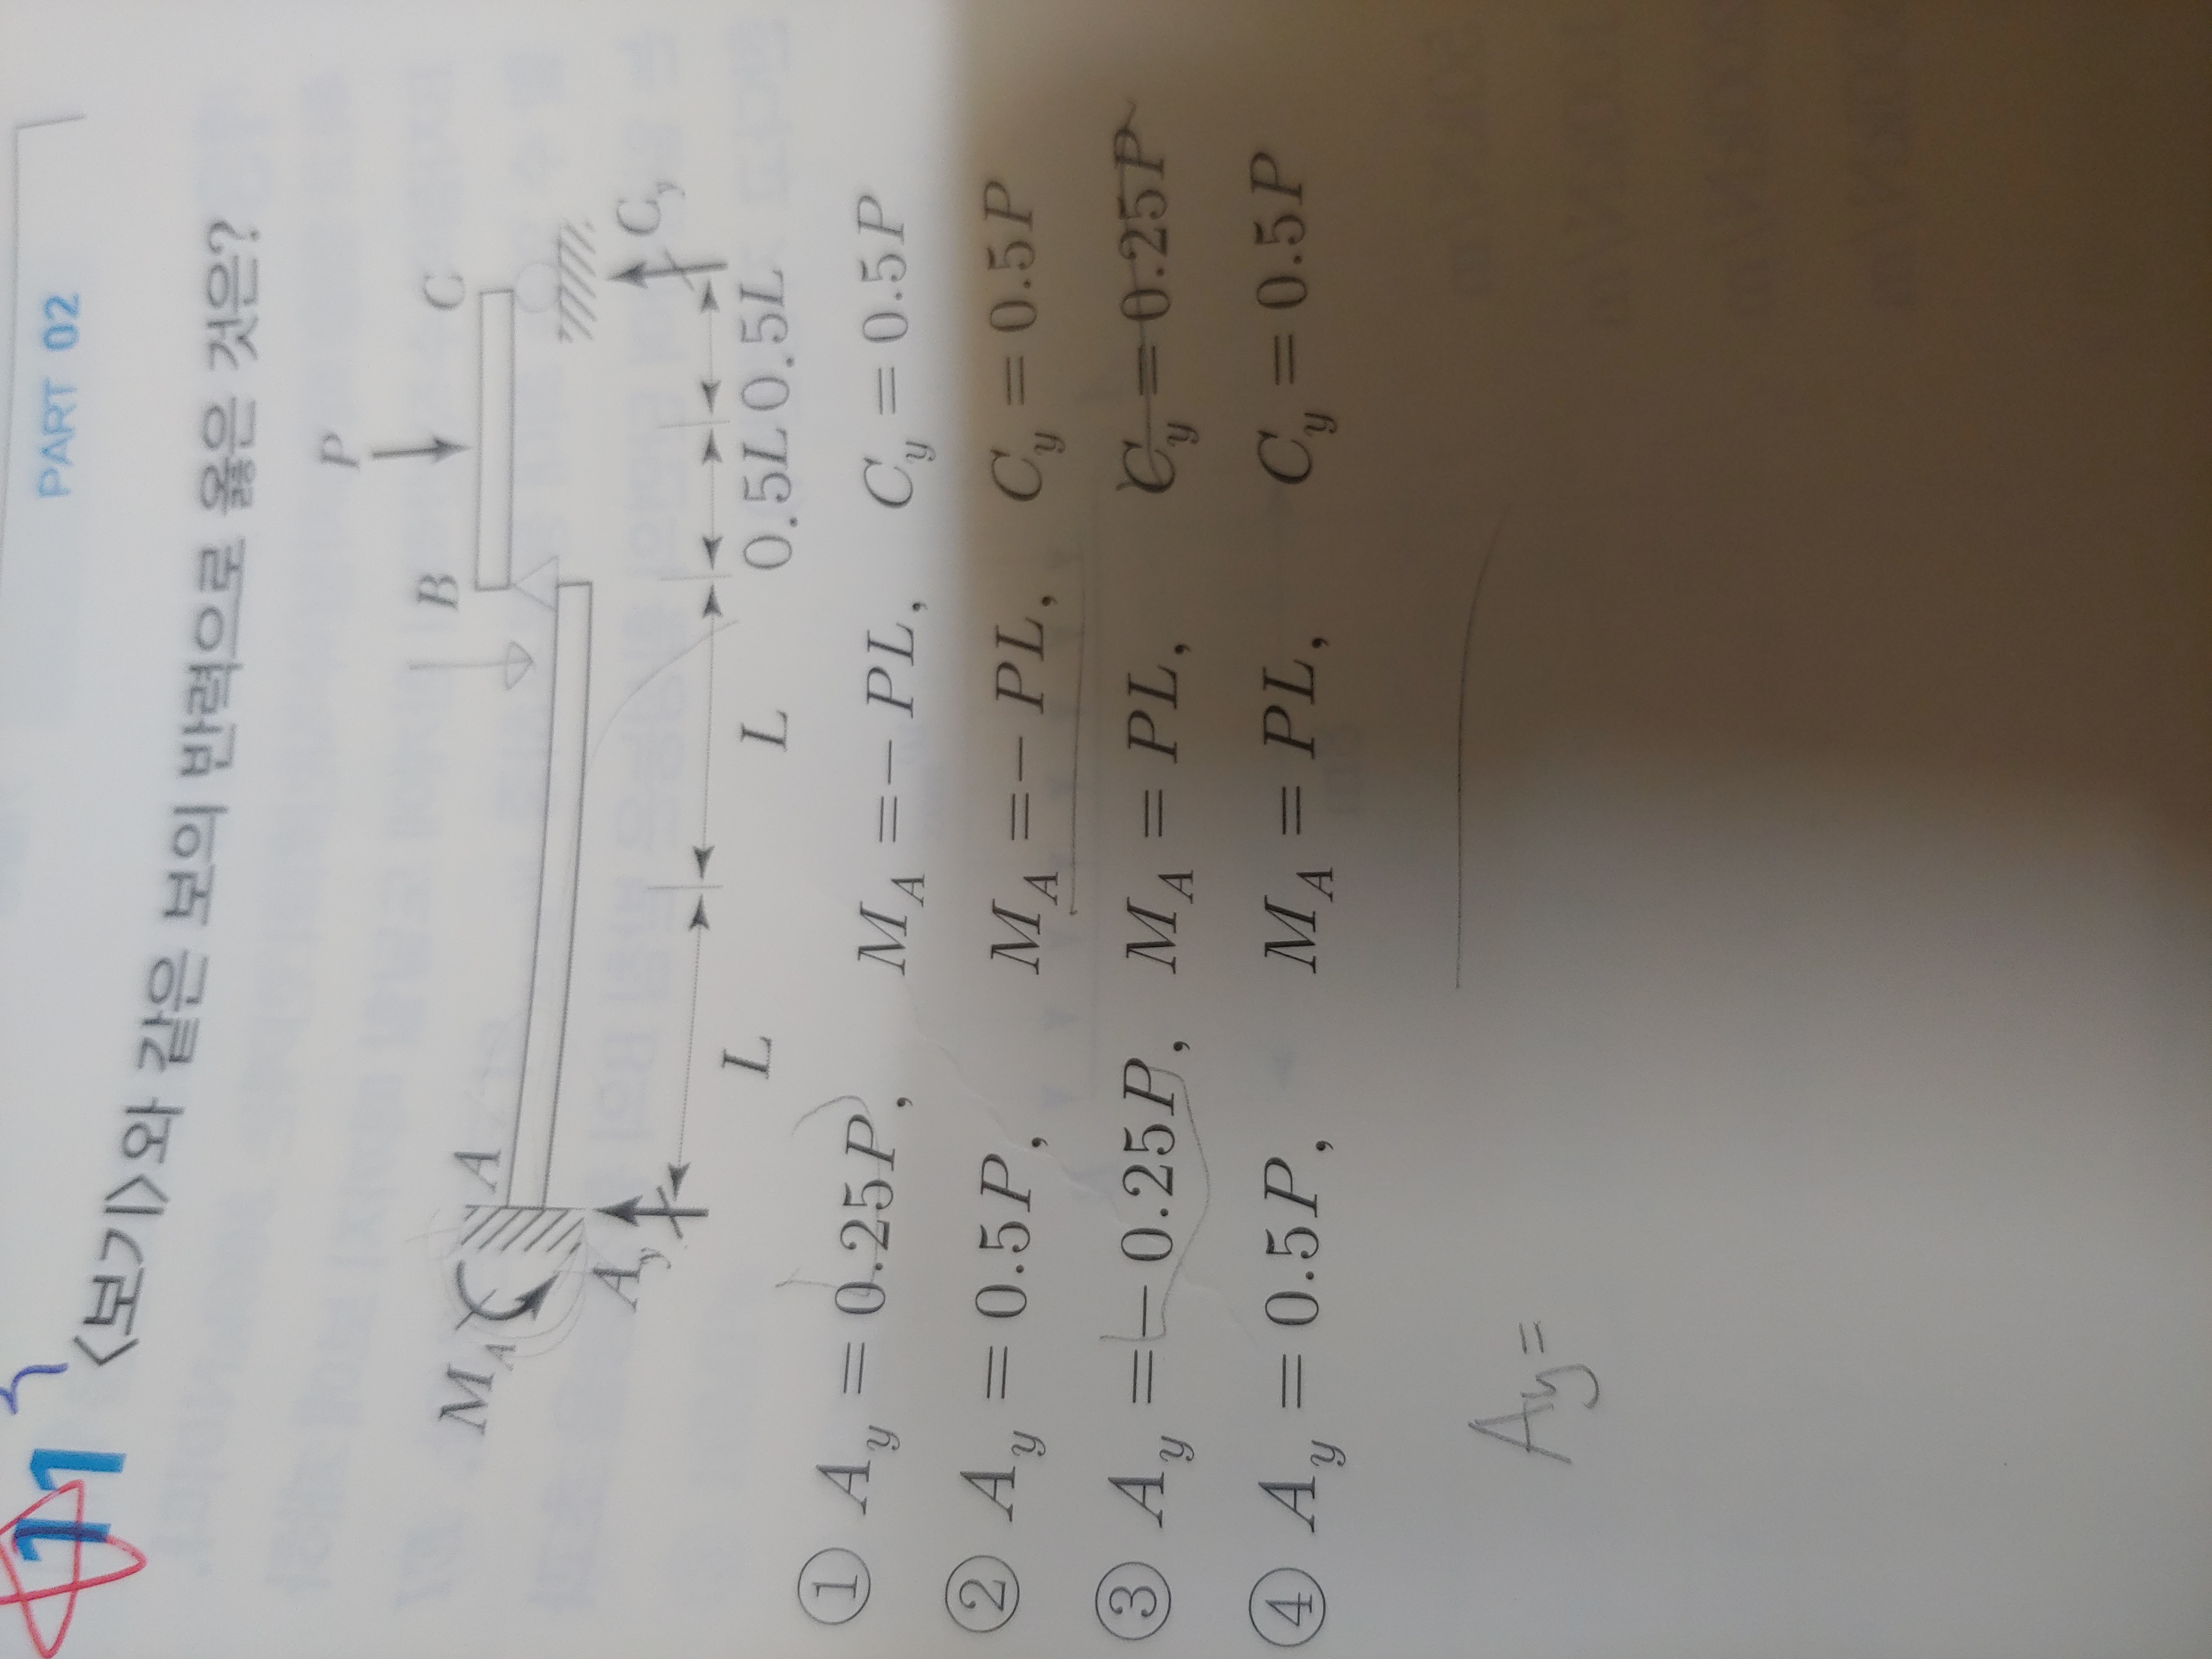 PART 02
11 <보기>와 같은 보의 반력으로 옳은 것은?
P
A B C
M_A
A_y C_y
L L 0.5L 0.5L
① A_y = 0.25P, M_A = -PL, C_y = 0.5P
② A_y = 0.5P, M_A = -PL, C_y = 0.5P
③ A_y = -0.25P, M_A = PL, C_y = 0.25P
④ A_y = 0.5P, M_A = PL, C_y = 0.5P
Ay=